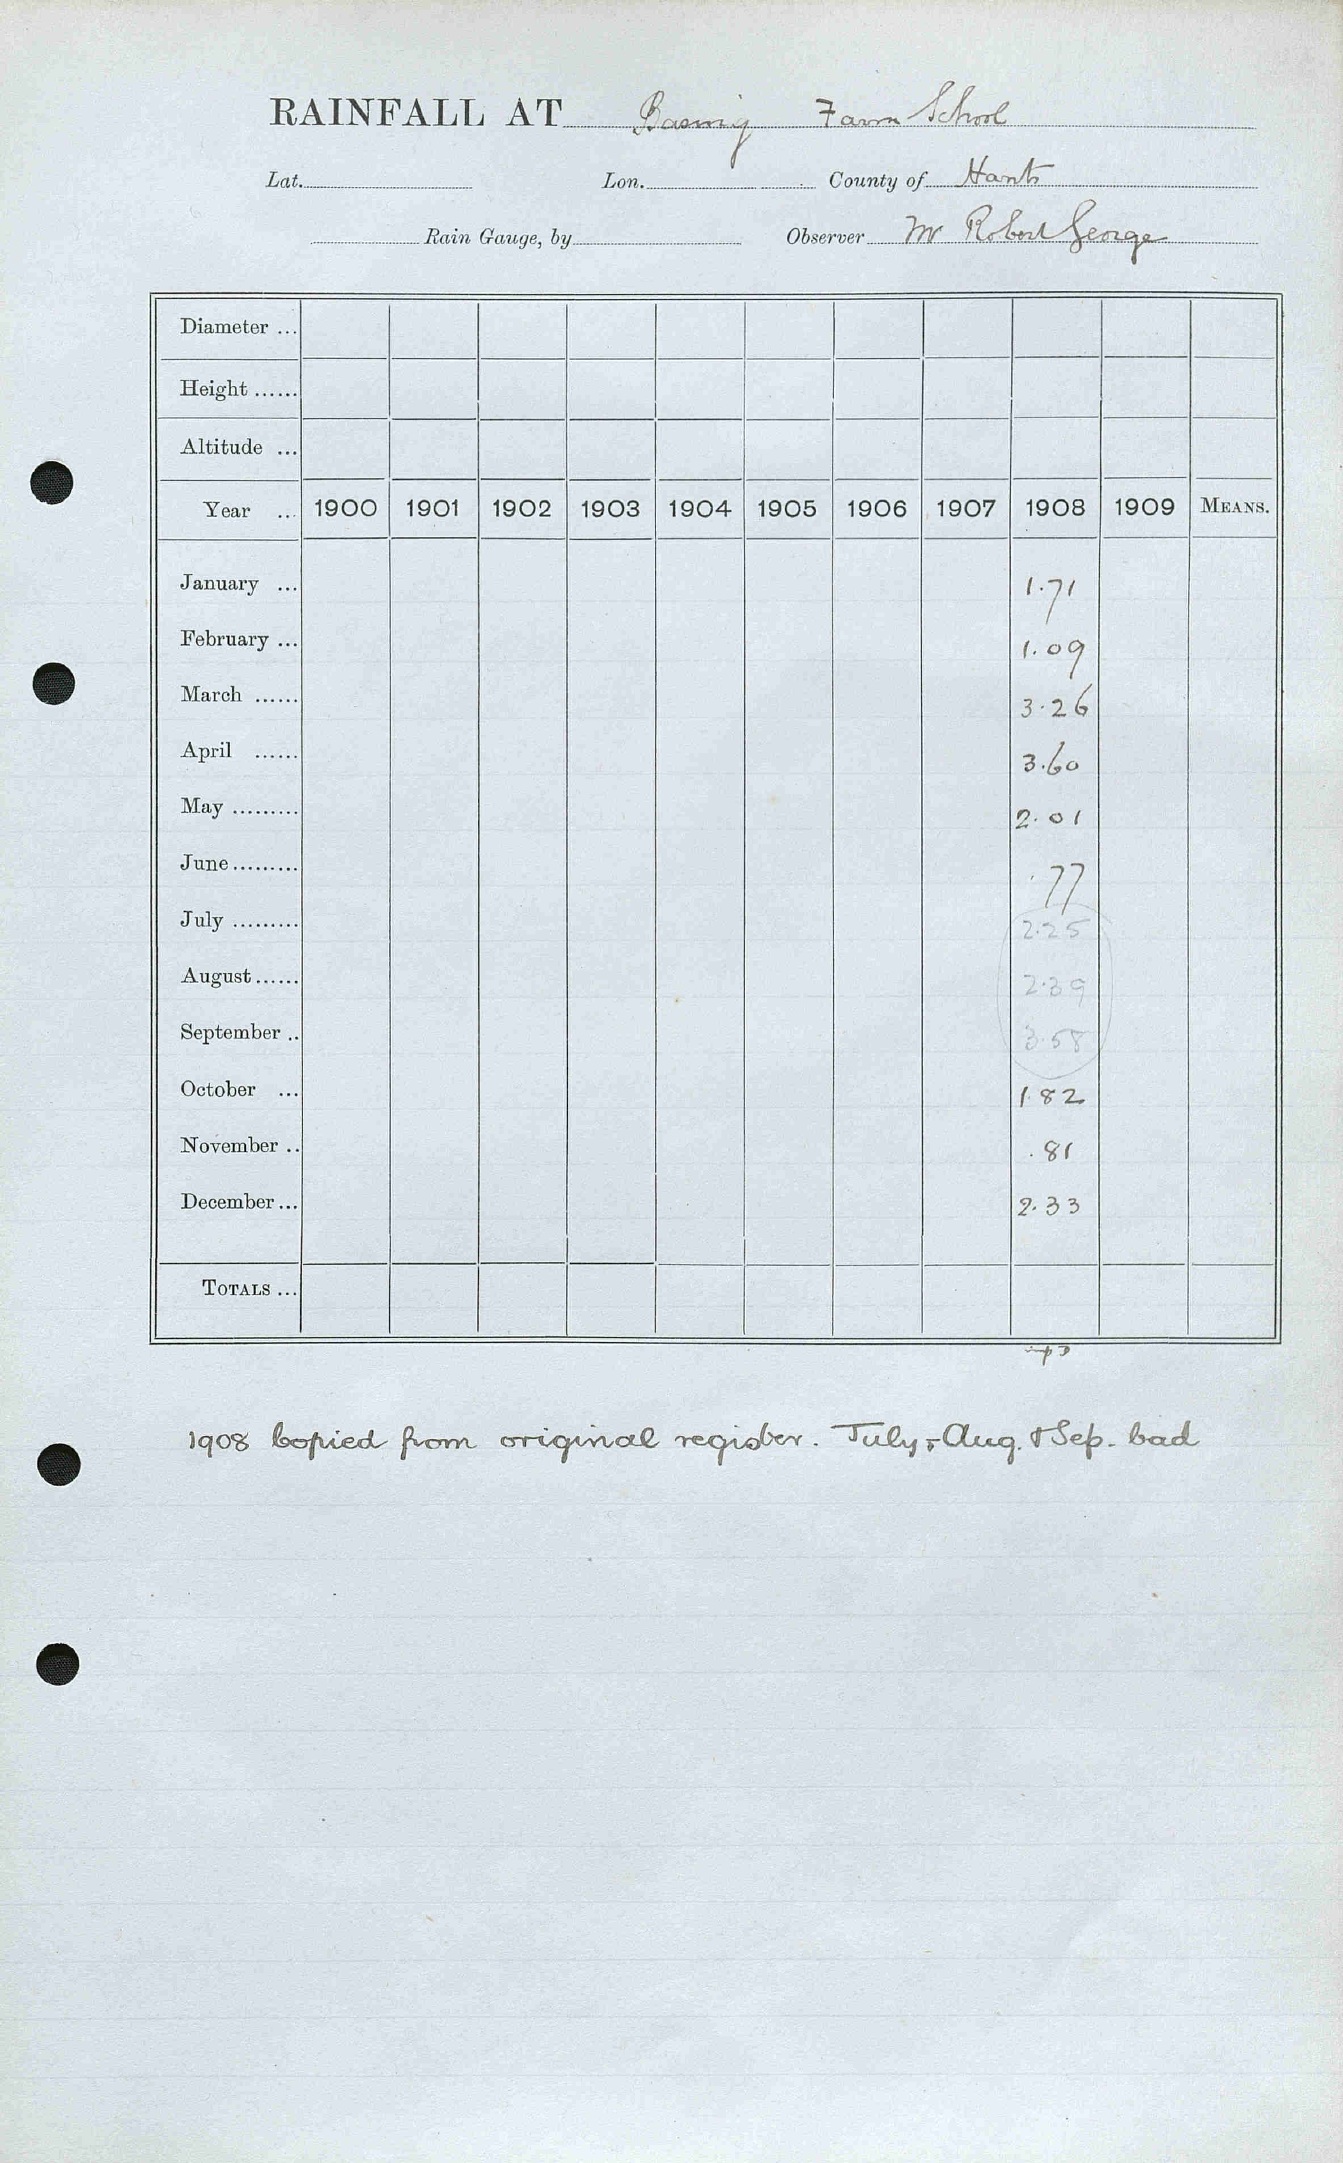 RAINFALL AT Basing Farm School
Lat. Lon. County of Hants
Rain Gauge, by Observer Mr Robert George
Diameter ...
Height ......
Altitude ...
Year ... 1900 1901 1902 1903 1904 1905 1906 1907 1908 1909 MEANS.
January ... 1.71
February ... 1.09
March ...... 3.26
April ...... 3.60
May ......... 2.01
June ......... .77
July ......... 2.25
August ...... 2.39
September .. 3.58
October ... 1.82
November .. .81
December ... 2.33
TOTALS ...
1908 Copied from original register. July, Aug. & Sep. bad